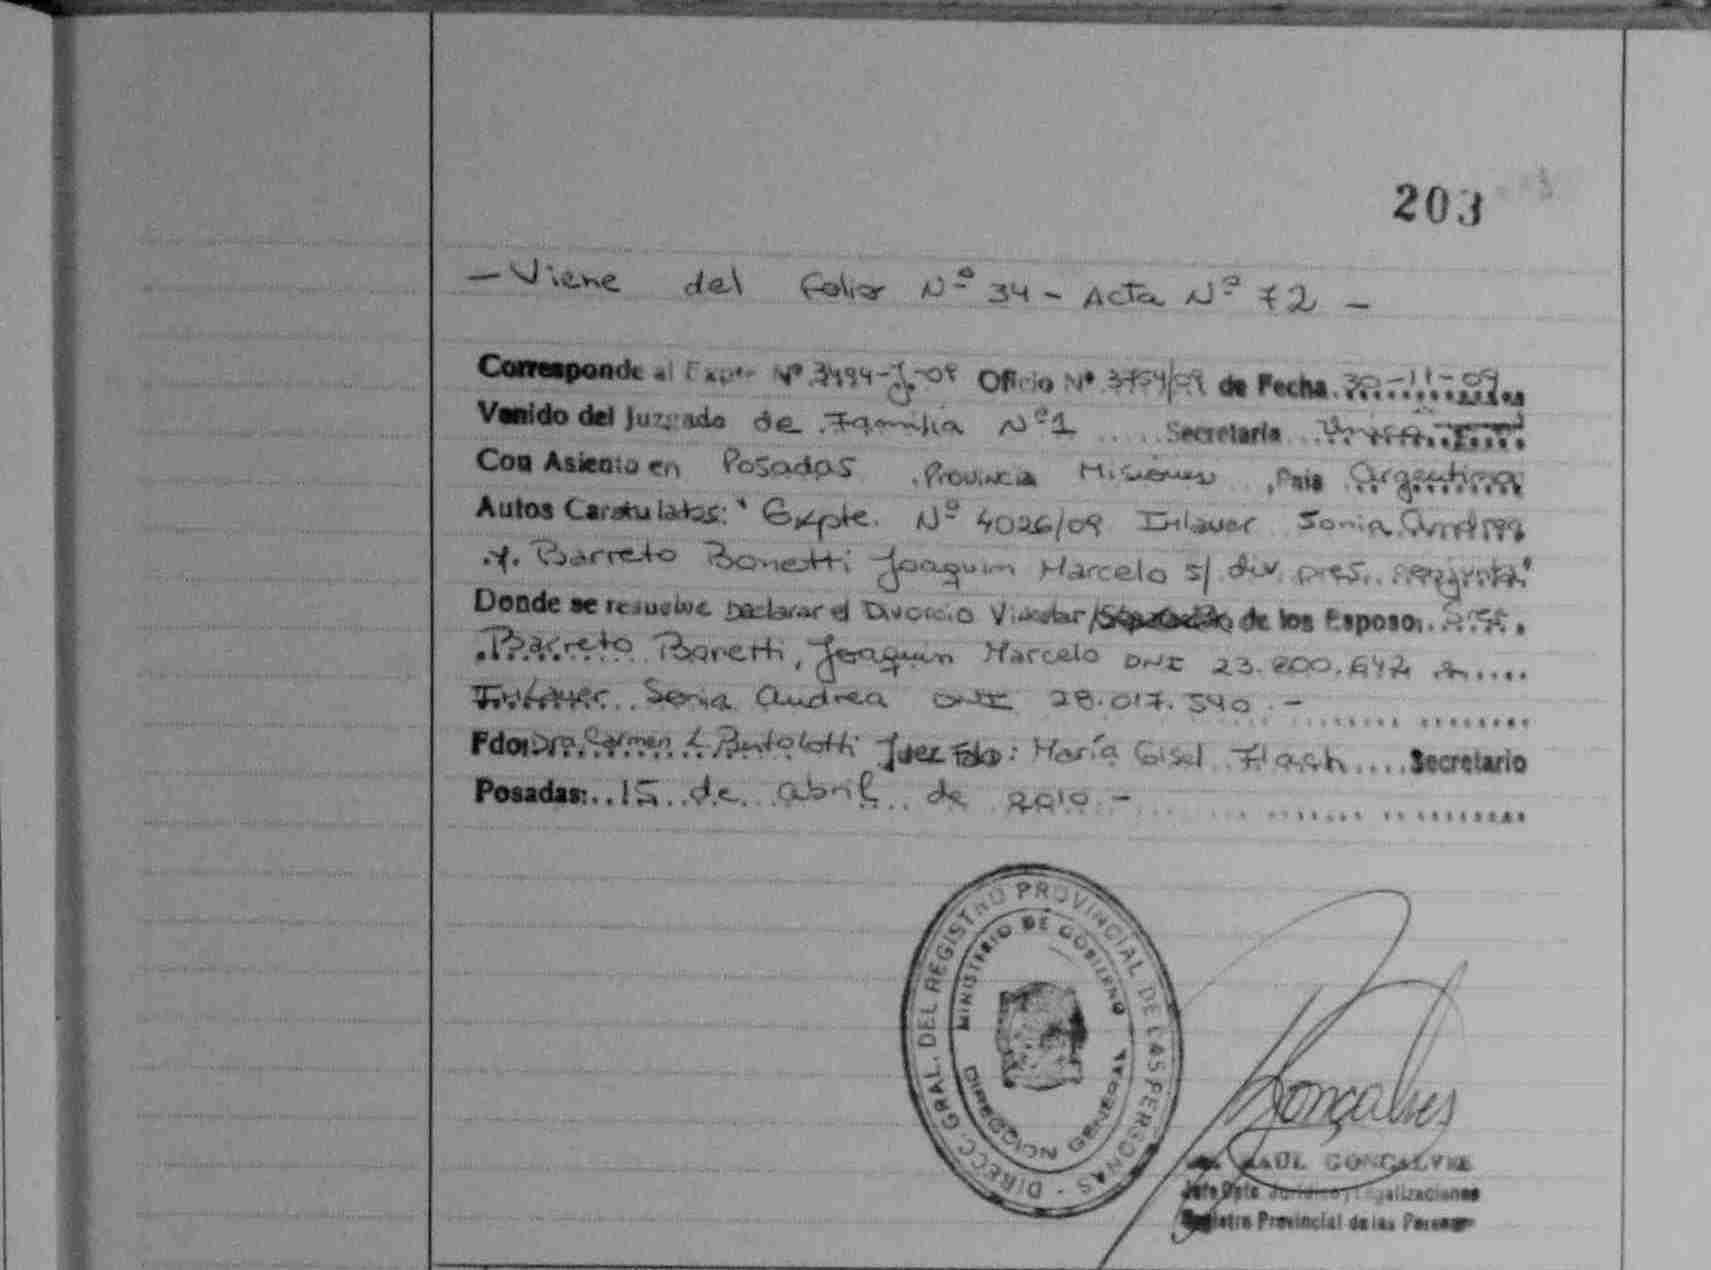 203
- Viene del folio Nº 34 - Acta Nº 72 -
Corresponde al Expte Nº 3494-J-09 Oficio Nº 3754/09 de Fecha 30-11-09
Venido del Juzgado de Familia Nº1 Secretaria Unica
Con Asiento en Posadas Provincia Misiones, Pais Argentina
Autos Caratulatas: "Expte. Nº 4026/09 Inlauer Sonia Andrea
y. Barreto Bonetti Joaquin Marcelo s/ div. pres. conjunta"
Donde se resuelve Declarar el Divorcio Vincular / de los Esposos
Barreto Bonetti, Joaquin Marcelo DNI 23.800.642
Inlauer Sonia Andrea DNI 28.017.540.-
Fdo: Dra. Carmen L. Bertolotti Juez Fdo: María Gisel Flach Secretario
Posadas: 15 de abril de 2010.-
DIRECC. GRAL. DEL REGISTRO PROVINCIAL DE LAS PERSONAS -
MINISTERIO DE GOBIERNO
DIRECCION GENERAL
Gonçalves
RAUL GONCALVES
Jefe Dpto Jurídico y Legalizaciones
Registro Provincial de las Personas